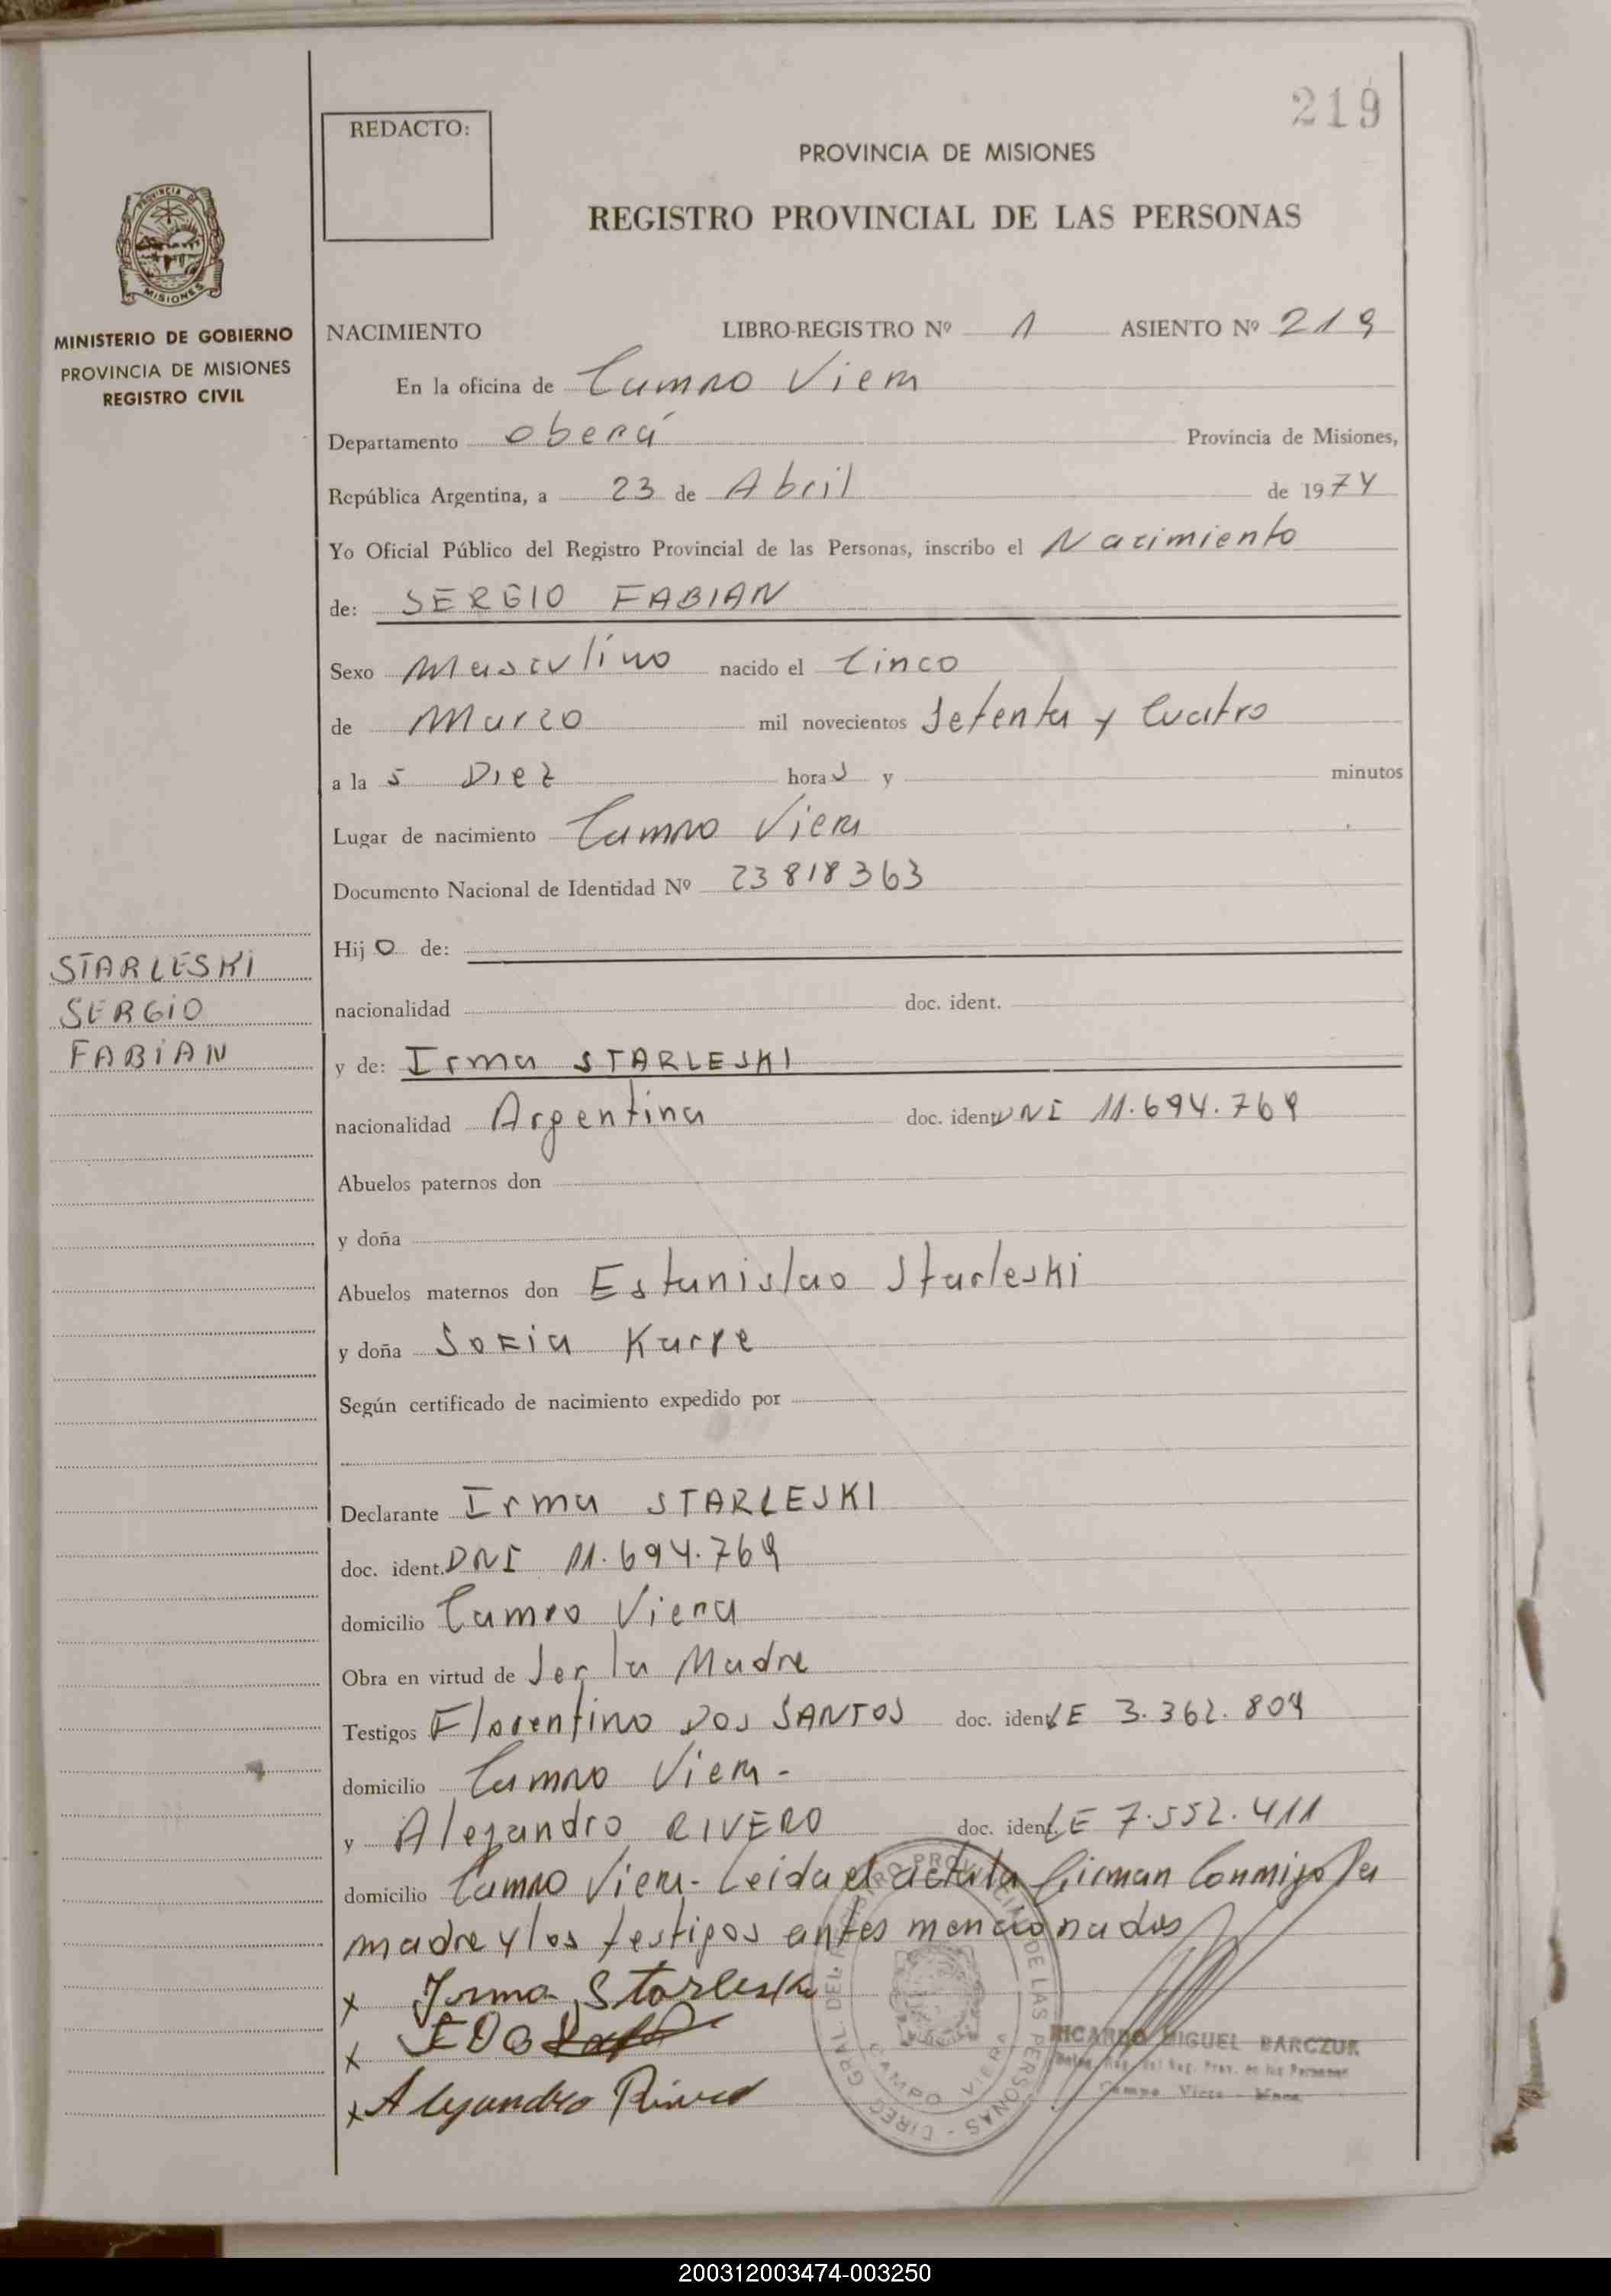 219
REDACTO:
PROVINCIA DE MISIONES
REGISTRO PROVINCIAL DE LAS PERSONAS
MISIONES
MINISTERIO DE GOBIERNO
PROVINCIA DE MISIONES
REGISTRO CIVIL
NACIMIENTO LIBRO-REGISTRO Nº 1 ASIENTO Nº 219
En la oficina de Campo Viera
Departamento Oberá Provincia de Misiones,
República Argentina, a 23 de Abril de 1974
Yo Oficial Público del Registro Provincial de las Personas, inscribo el Nacimiento
de: SERGIO FABIAN
Sexo Masculino nacido el Cinco
de Marzo mil novecientos Setenta y Cuatro
a la s Diez horas y minutos
Lugar de nacimiento Campo Viera
Documento Nacional de Identidad Nº 23818363
Hijo de:
nacionalidad doc. ident.
STARLESKI
SERGIO
FABIAN
y de: Irma STARLESKI
nacionalidad Argentina doc. ident. DNI 11.694.769
Abuelos paternos don
y doña
Abuelos maternos don Estanislao Starleski
y doña Sofia Karpe
Según certificado de nacimiento expedido por
Declarante Irma STARLESKI
doc. ident. DNI 11.694.769
domicilio Campo Viera
Obra en virtud de Ser la Madre
Testigos Florentino DOS SANTOS doc. ident. LE 3.362.809
domicilio Campo Viera-
y Alejandro RIVERO doc. ident. LE 7.552.411
domicilio Campo Viera- Leida el acta la firman Conmigo la
madre y los testigos antes mencionados
x Irma Starleski
x
x Alejandro Rivero
DIREC. GRAL. DEL REGISTRO PROVINCIAL DE LAS PERSONAS
CAMPO VIERA
RICARDO MIGUEL BARCZUK
Campo Viera
200312003474-003250